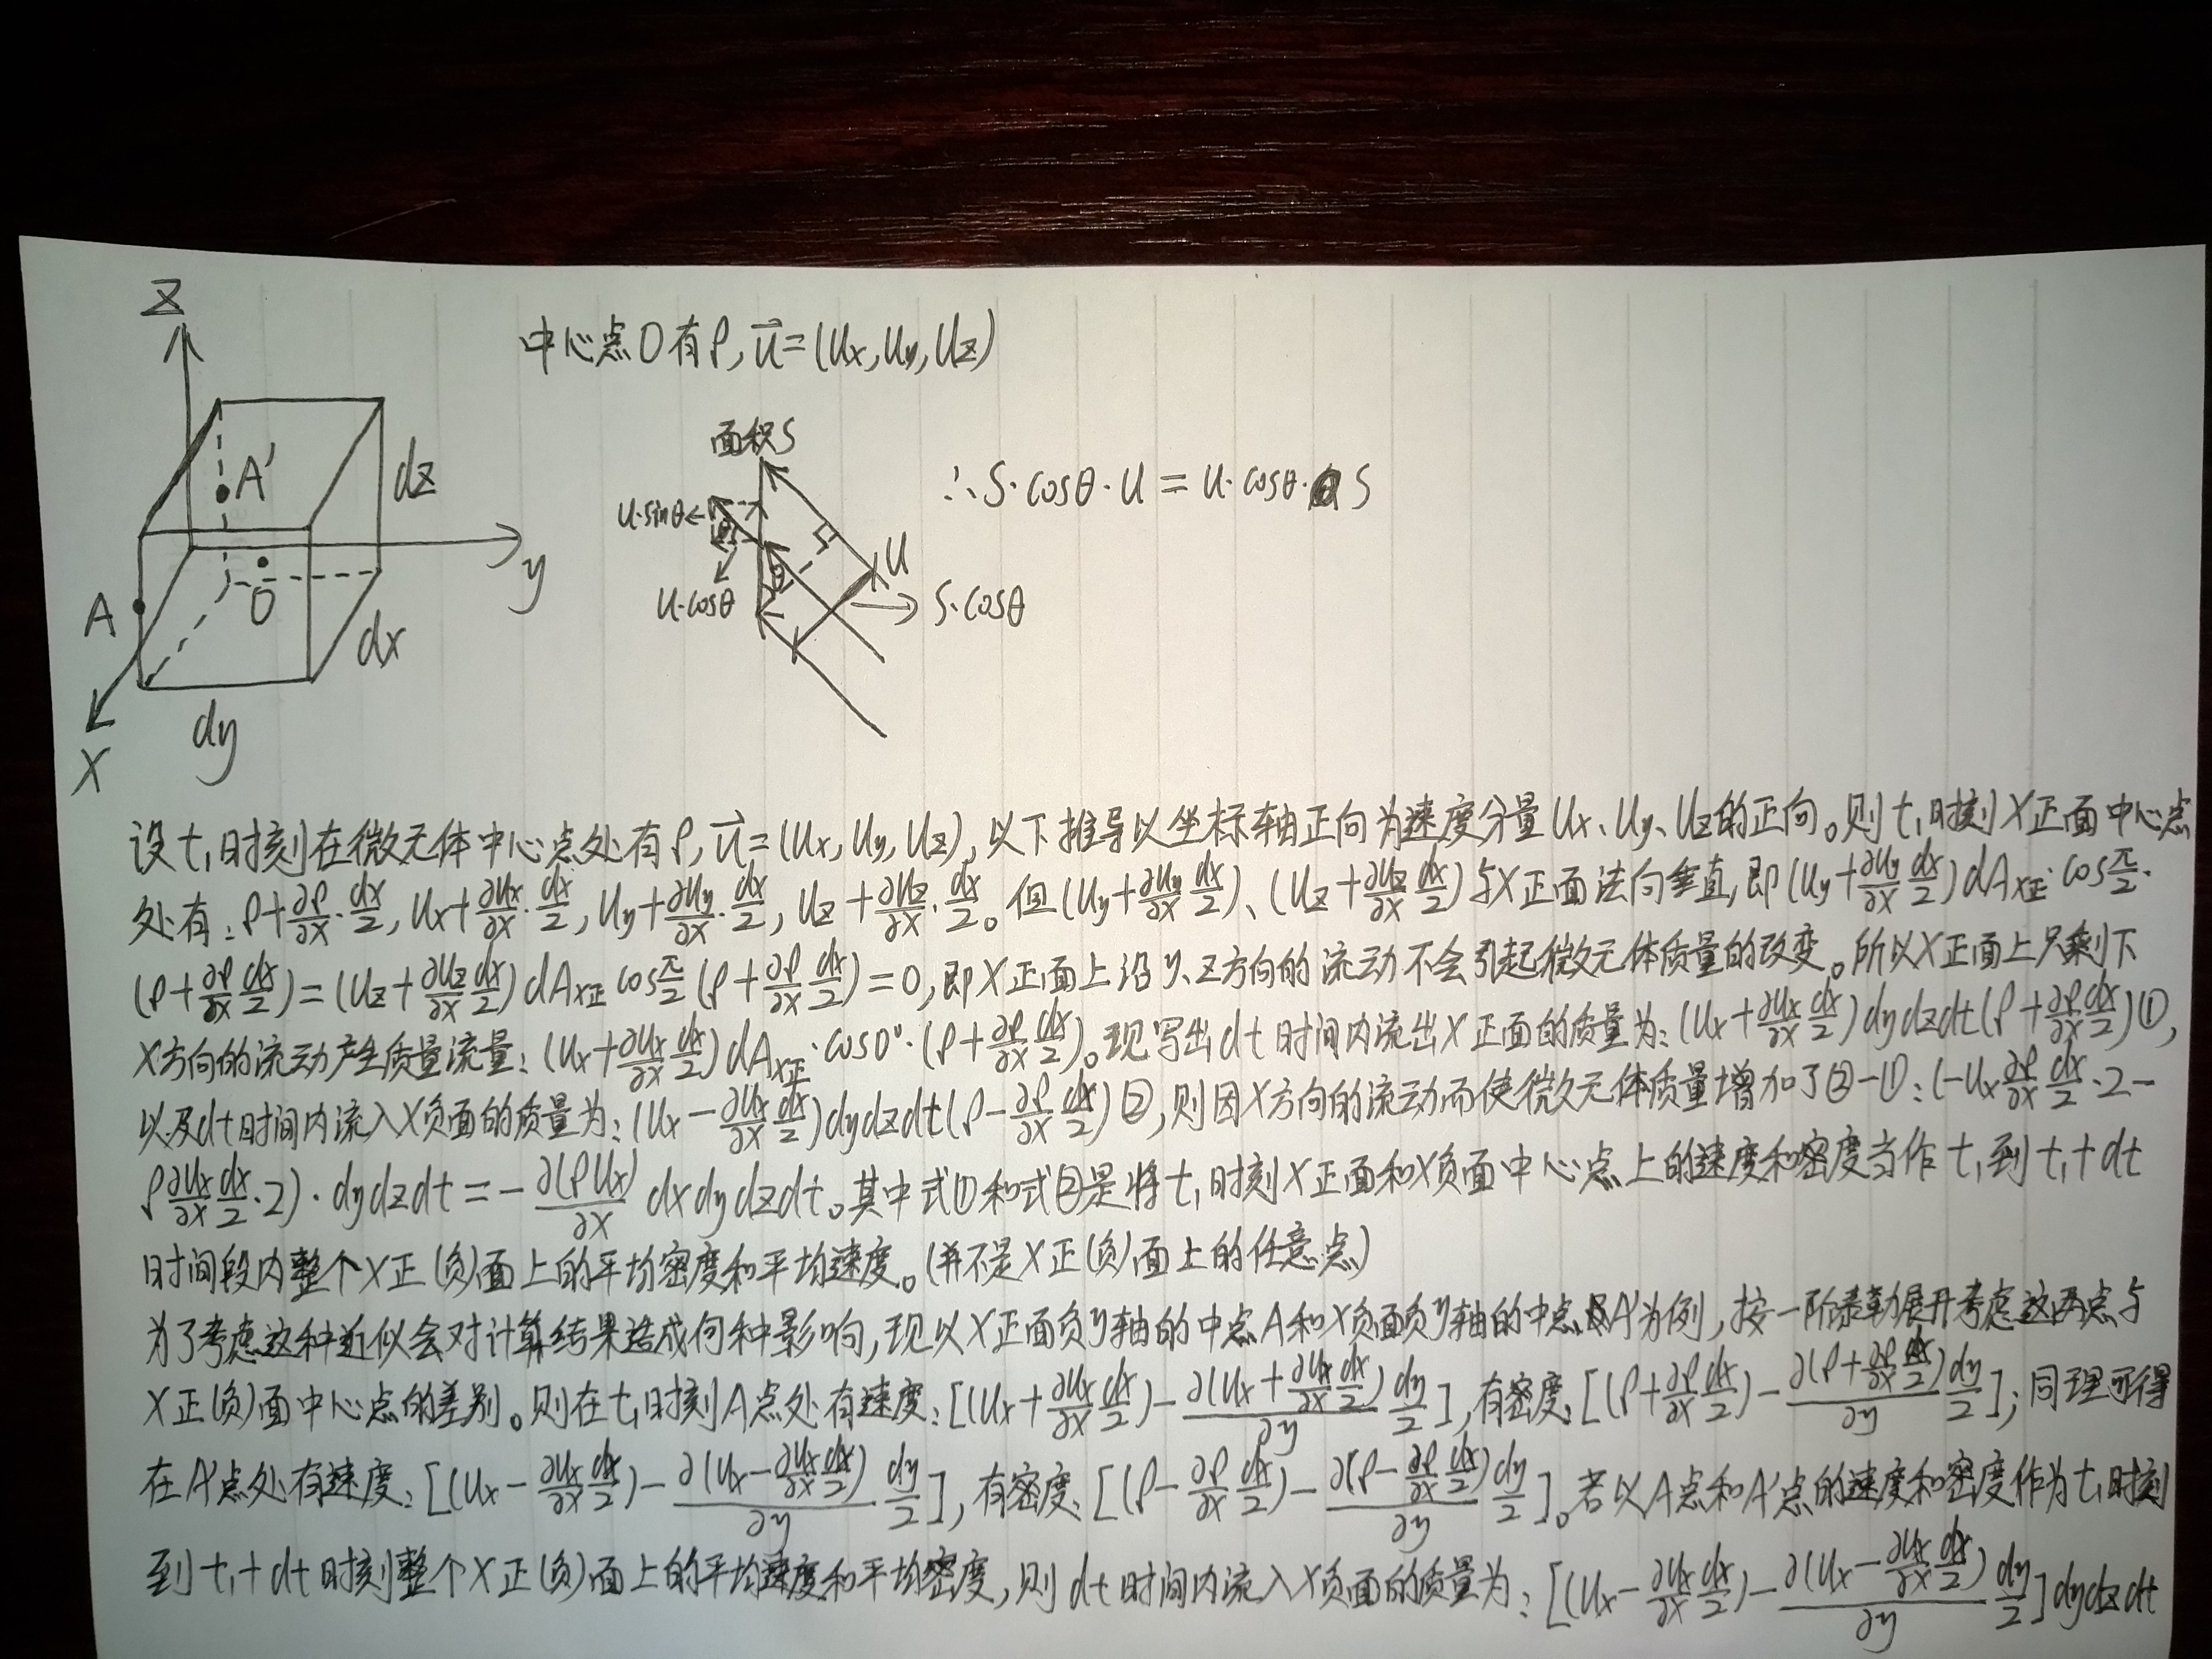 Z
中心点O有ρ, u⃗=(Ux, Uy, Uz)
面积S
A'
dz
∴S·cosθ·U = U·cosθ·S
U·sinθ
θ
y
U
A
O
θ
U·cosθ
S·cosθ
dx
dy
X
设t₁时刻在微元体中心点处有ρ, u⃗=(Ux, Uy, Uz), 以下推导以坐标轴正向为速度分量Ux、Uy、Uz的正向。则t₁时刻X正面中心点
处有: ρ+∂ρ/∂x·dx/2, Ux+∂Ux/∂x·dx/2, Uy+∂Uy/∂x·dx/2, Uz+∂Uz/∂x·dx/2。但(Uy+∂Uy/∂x dx/2)、(Uz+∂Uz/∂x dx/2)与X正面法向垂直, 即(Uy+∂Uy/∂x dx/2)dAx正·cosπ/2·
(ρ+∂ρ/∂x dx/2)=(Uz+∂Uz/∂x dx/2)dAx正 cosπ/2(ρ+∂ρ/∂x dx/2)=0, 即X正面上沿y、z方向的流动不会引起微元体质量的改变。所以X正面上只剩下
X方向的流动产生质量流量: (Ux+∂Ux/∂x dx/2)dAx正·cos0°·(ρ+∂ρ/∂x dx/2)。现写出dt时间内流出X正面的质量为: (Ux+∂Ux/∂x dx/2)dydzdt(ρ+∂ρ/∂x dx/2)①,
以及dt时间内流入X负面的质量为: (Ux-∂Ux/∂x dx/2)dydzdt(ρ-∂ρ/∂x dx/2)②, 则因X方向的流动而使微元体质量增加了②-①: (-Ux ∂ρ/∂x dx/2·2-
ρ ∂Ux/∂x dx/2·2)·dydzdt = -∂(ρUx)/∂x dxdydzdt。其中式①和式②是将t₁时刻X正面和X负面中心点上的速度和密度当作t₁到t₁+dt
时间段内整个X正(负)面上的平均密度和平均速度。(并不是X正(负)面上的任意点)
为了考虑这种近似会对计算结果造成何种影响, 现以X正面负y轴的中点A和X负面负y轴的中点A'为例, 按一阶泰勒展开考虑这两点与
X正(负)面中心点的差别。则在t₁时刻A点处有速度: [(Ux+∂Ux/∂x dx/2)-∂(Ux+∂Ux/∂x dx/2)/∂y dy/2], 有密度: [(ρ+∂ρ/∂x dx/2)-∂(ρ+∂ρ/∂x dx/2)/∂y dy/2]; 同理可得
在A'点处有速度: [(Ux-∂Ux/∂x dx/2)-∂(Ux-∂Ux/∂x dx/2)/∂y dy/2], 有密度: [(ρ-∂ρ/∂x dx/2)-∂(ρ-∂ρ/∂x dx/2)/∂y dy/2]。若以A点和A'点的速度和密度作为t₁时刻
到t₁+dt时刻整个X正(负)面上的平均速度和平均密度, 则dt时间内流入X负面的质量为: [(Ux-∂Ux/∂x dx/2)-∂(Ux-∂Ux/∂x dx/2)/∂y dy/2]dydzdt